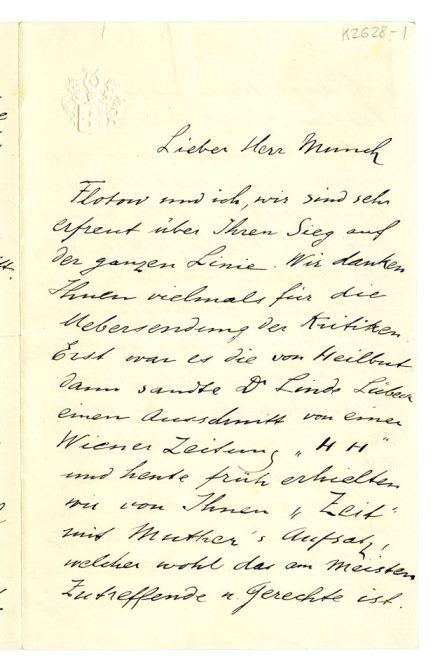 K2628-1
Lieber Herr Munch
Flotow und ich, wir sind sehr
erfreut über Ihren Sieg auf
der ganzen Linie. Wir danken
Ihnen vielmals für die
Uebersendung der Kritiken.
Erst war es die von Heilbut
dann sandte Dr Linde Lübeck
einen Ausschnitt von einer
Wiener Zeitung „H H"
und heute früh erhielten
wir von Ihnen „Zeit"
mit Muther's Aufsatz,
welcher wohl das am meisten
Zutreffende u. Gerechte ist.